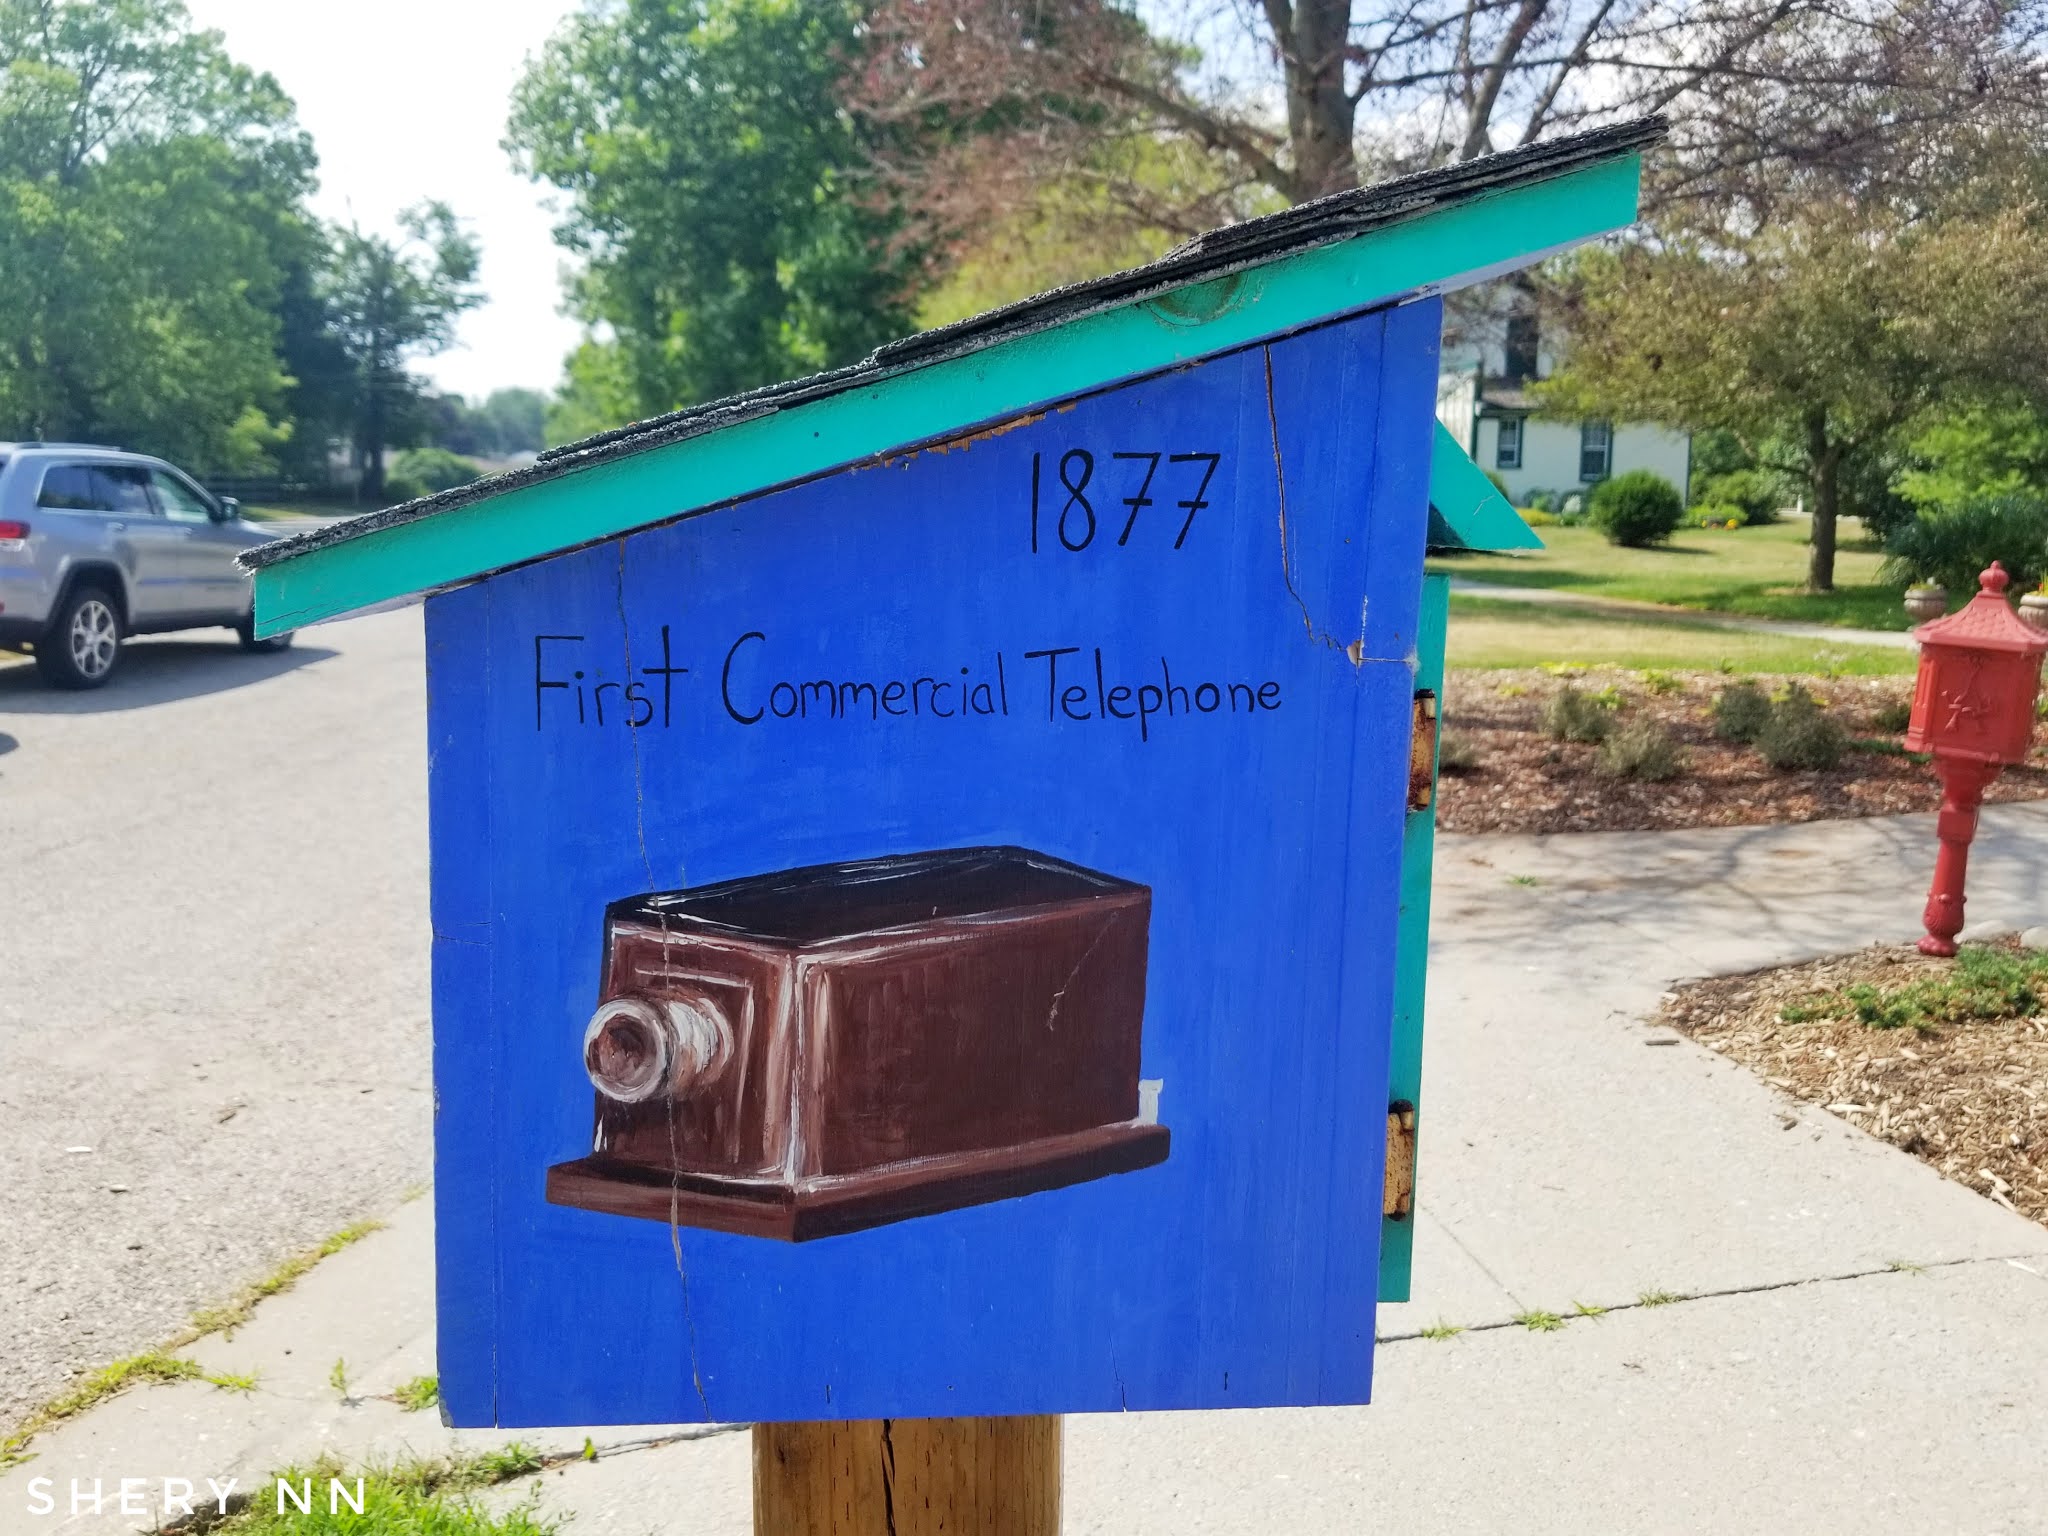 1877
First Commercial Telephone
SHERY NN